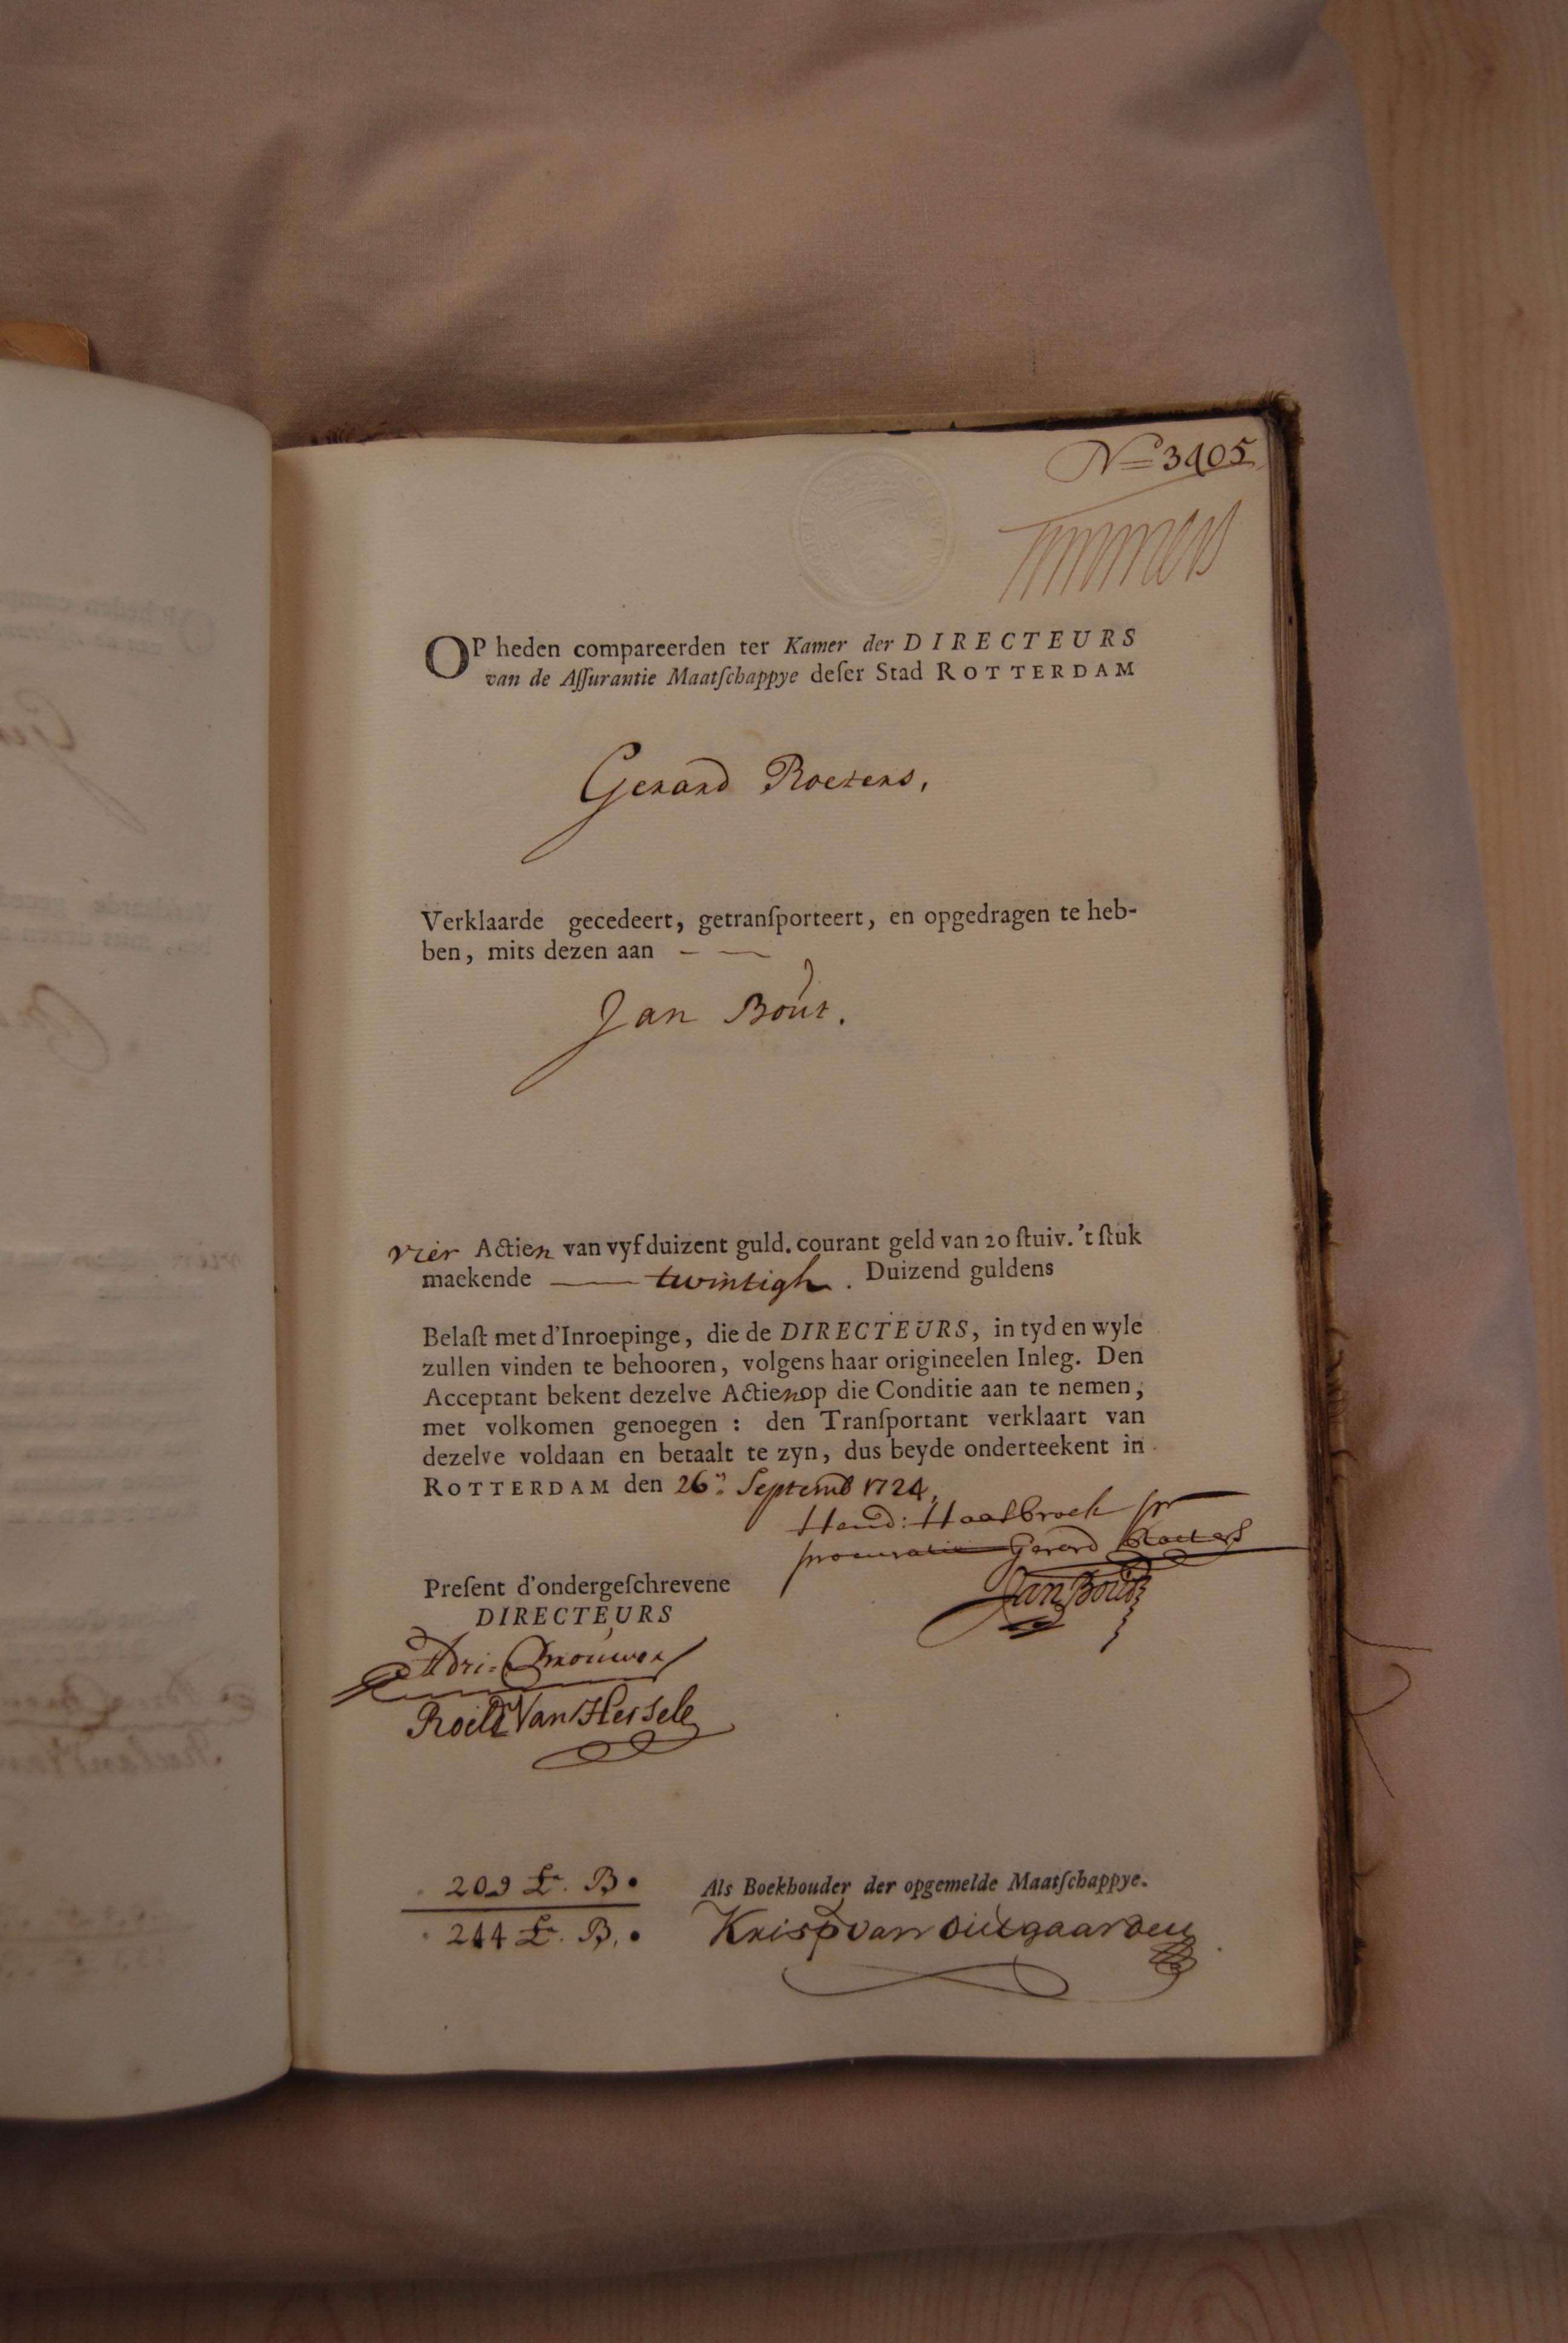 No 3405
Timmers
OP heden compareerden ter Kamer der DIRECTEURS
van de Aſſurantie Maatſchappye deſer Stad ROTTERDAM
Gerard Roeters,
Verklaarde gecedeert, getranſporteert, en opgedragen te heb-
ben, mits dezen aan
Jan Bout.
vier Actien van vyf duizent guld. courant geld van 20 ſtuiv. 't ſtuk
maekende twintigh. Duizend guldens
Belaſt met d'Inroepinge, die de DIRECTEURS, in tyd en wyle
zullen vinden te behooren, volgens haar origineelen Inleg. Den
Acceptant bekent dezelve Actien op die Conditie aan te nemen,
met volkomen genoegen : den Tranſportant verklaart van
dezelve voldaan en betaalt te zyn, dus beyde onderteekent in
ROTTERDAM den 26: Septemb 1724,
Hend: Haasbroek pr
procuratie Gerard Roeters
Jan Bout
Preſent d'ondergeſchrevene
DIRECTEURS
Adri: Brouwer
Roelt Van Hessele
209 L. B.
244 L. B.
Als Boekhouder der opgemelde Maatſchappye.
Krisp van Outgaarden